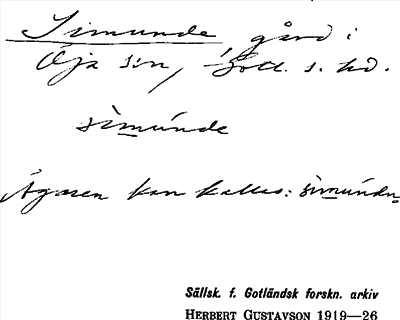 Simunde gård i
Öja sn, Gotl. s. hd.
sìmúnde
Ägaren kan kallas: sìmúndn
Sällsk. f. Gotländsk forskn. arkiv
HERBERT GUSTAVSON 1919—26